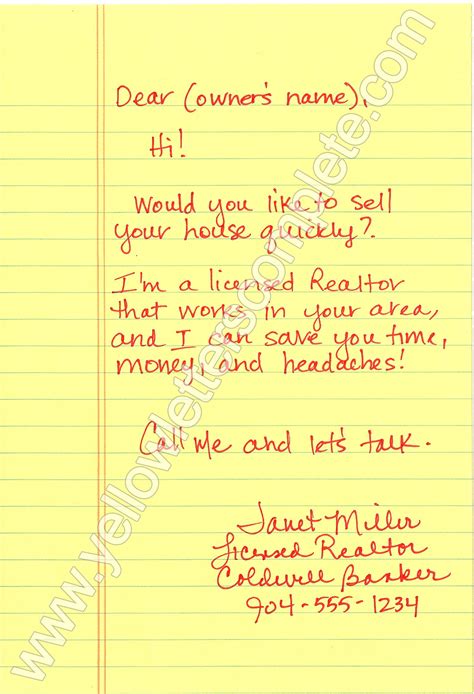 Dear (owner's name),
Hi!
Would you like to sell
your house quickly?
I'm a licensed Realtor
that works in your area,
and I can save you time,
money, and headaches!
Call Me and let's talk.
Janet Miller
Licensed Realtor
Coldwell Banker
904-555-1234
www.yellowletterscomplete.com